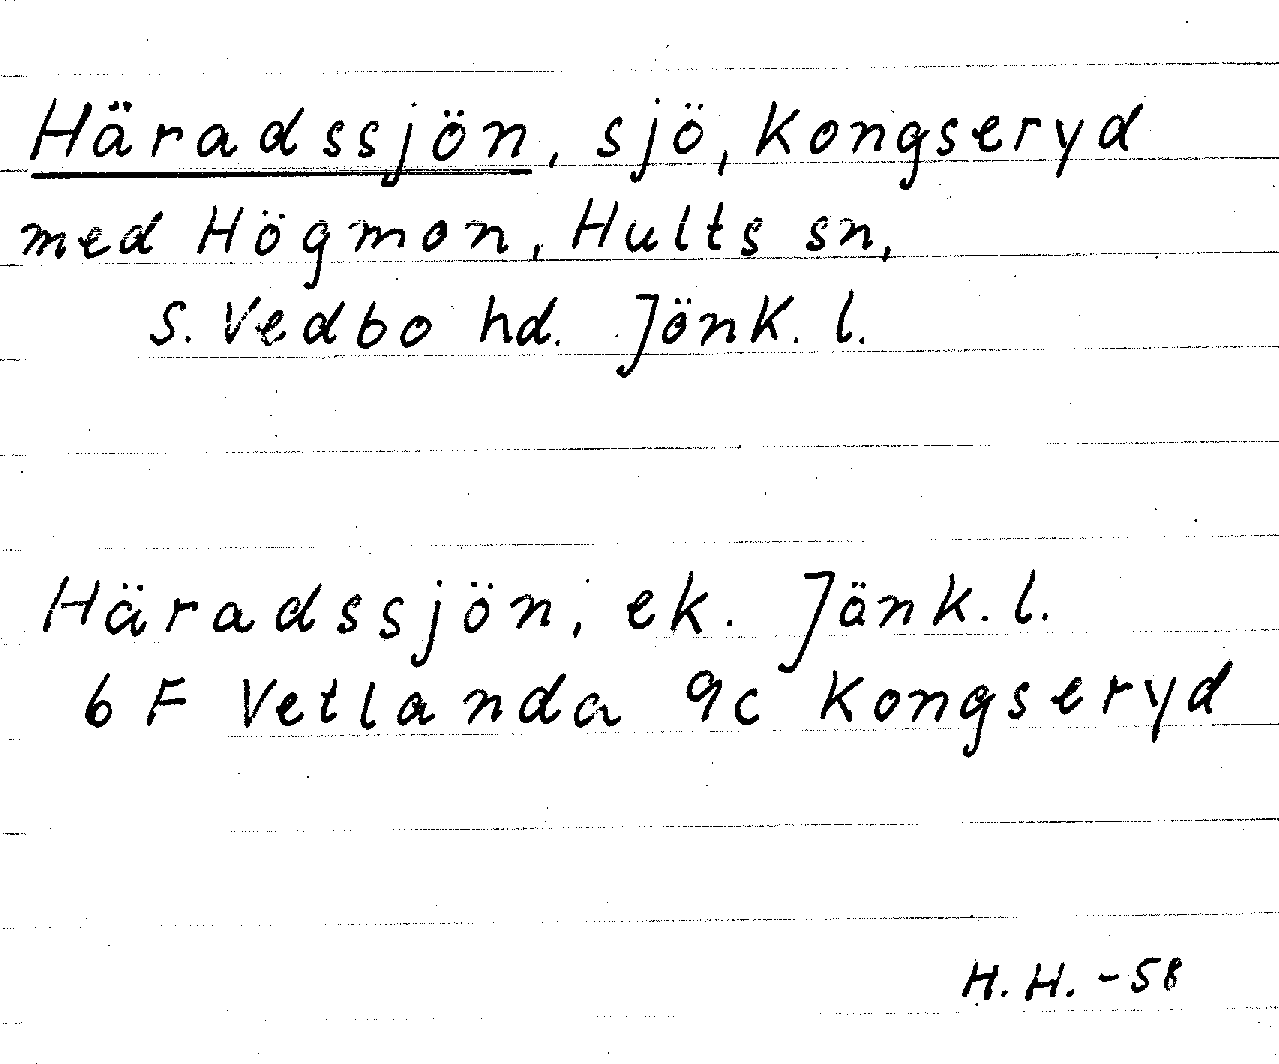 Häradssjön, sjö, Kongseryd
med Högmon, Hults sn,
S. Vedbo hd. Jönk. l.
Häradssjön, ek. Jönk. l.
6 F Vetlanda 9c Kongseryd
H. H. - 58